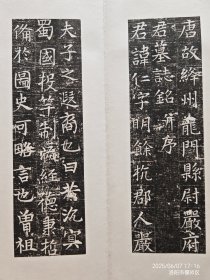 唐故絳州龍門縣尉嚴府
君墓誌銘并序
君諱仁字明餘杭郡人嚴
夫子之遐裔也曰若沉冥
蜀國投竿制
備於圖史可略言也曾祖
2025/06/07 17:16